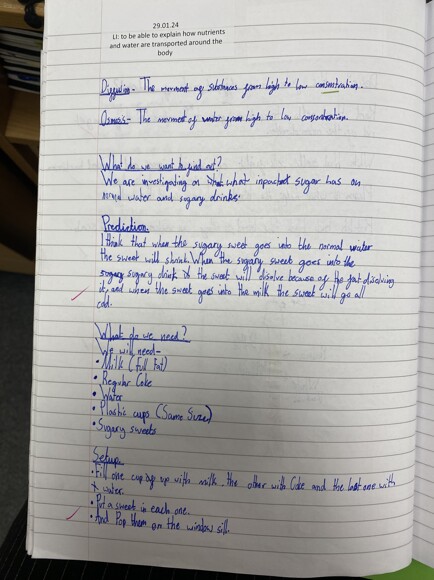 29.01.24
LI: to be able to explain how nutrients
and water are transported around the
body
Diffusion - The movment of substances from high to low consentration.
Osmosis - The movment of water from high to low consentration.
What do we want to find out?
We are investigating on what impact sugar has on
normal water and sugary drinks.
Prediction.
I think that when the sugary sweet goes into the normal water
the sweet will shrink. When the sugary sweet goes into the
sugary drink the sweet will disolve because of the fat disolving
it, and when the sweet goes into the milk the sweet will go all
What do we need?
We will need-
• Milk (Full Fat)
• Regular Coke
• Water
• Plastic cups (Same Size)
• Sugary sweets
Setup.
• Fill one cup up with milk, the other with Coke and the last one with
water.
• Put a sweet in each one.
• And Pop them on the window sill.